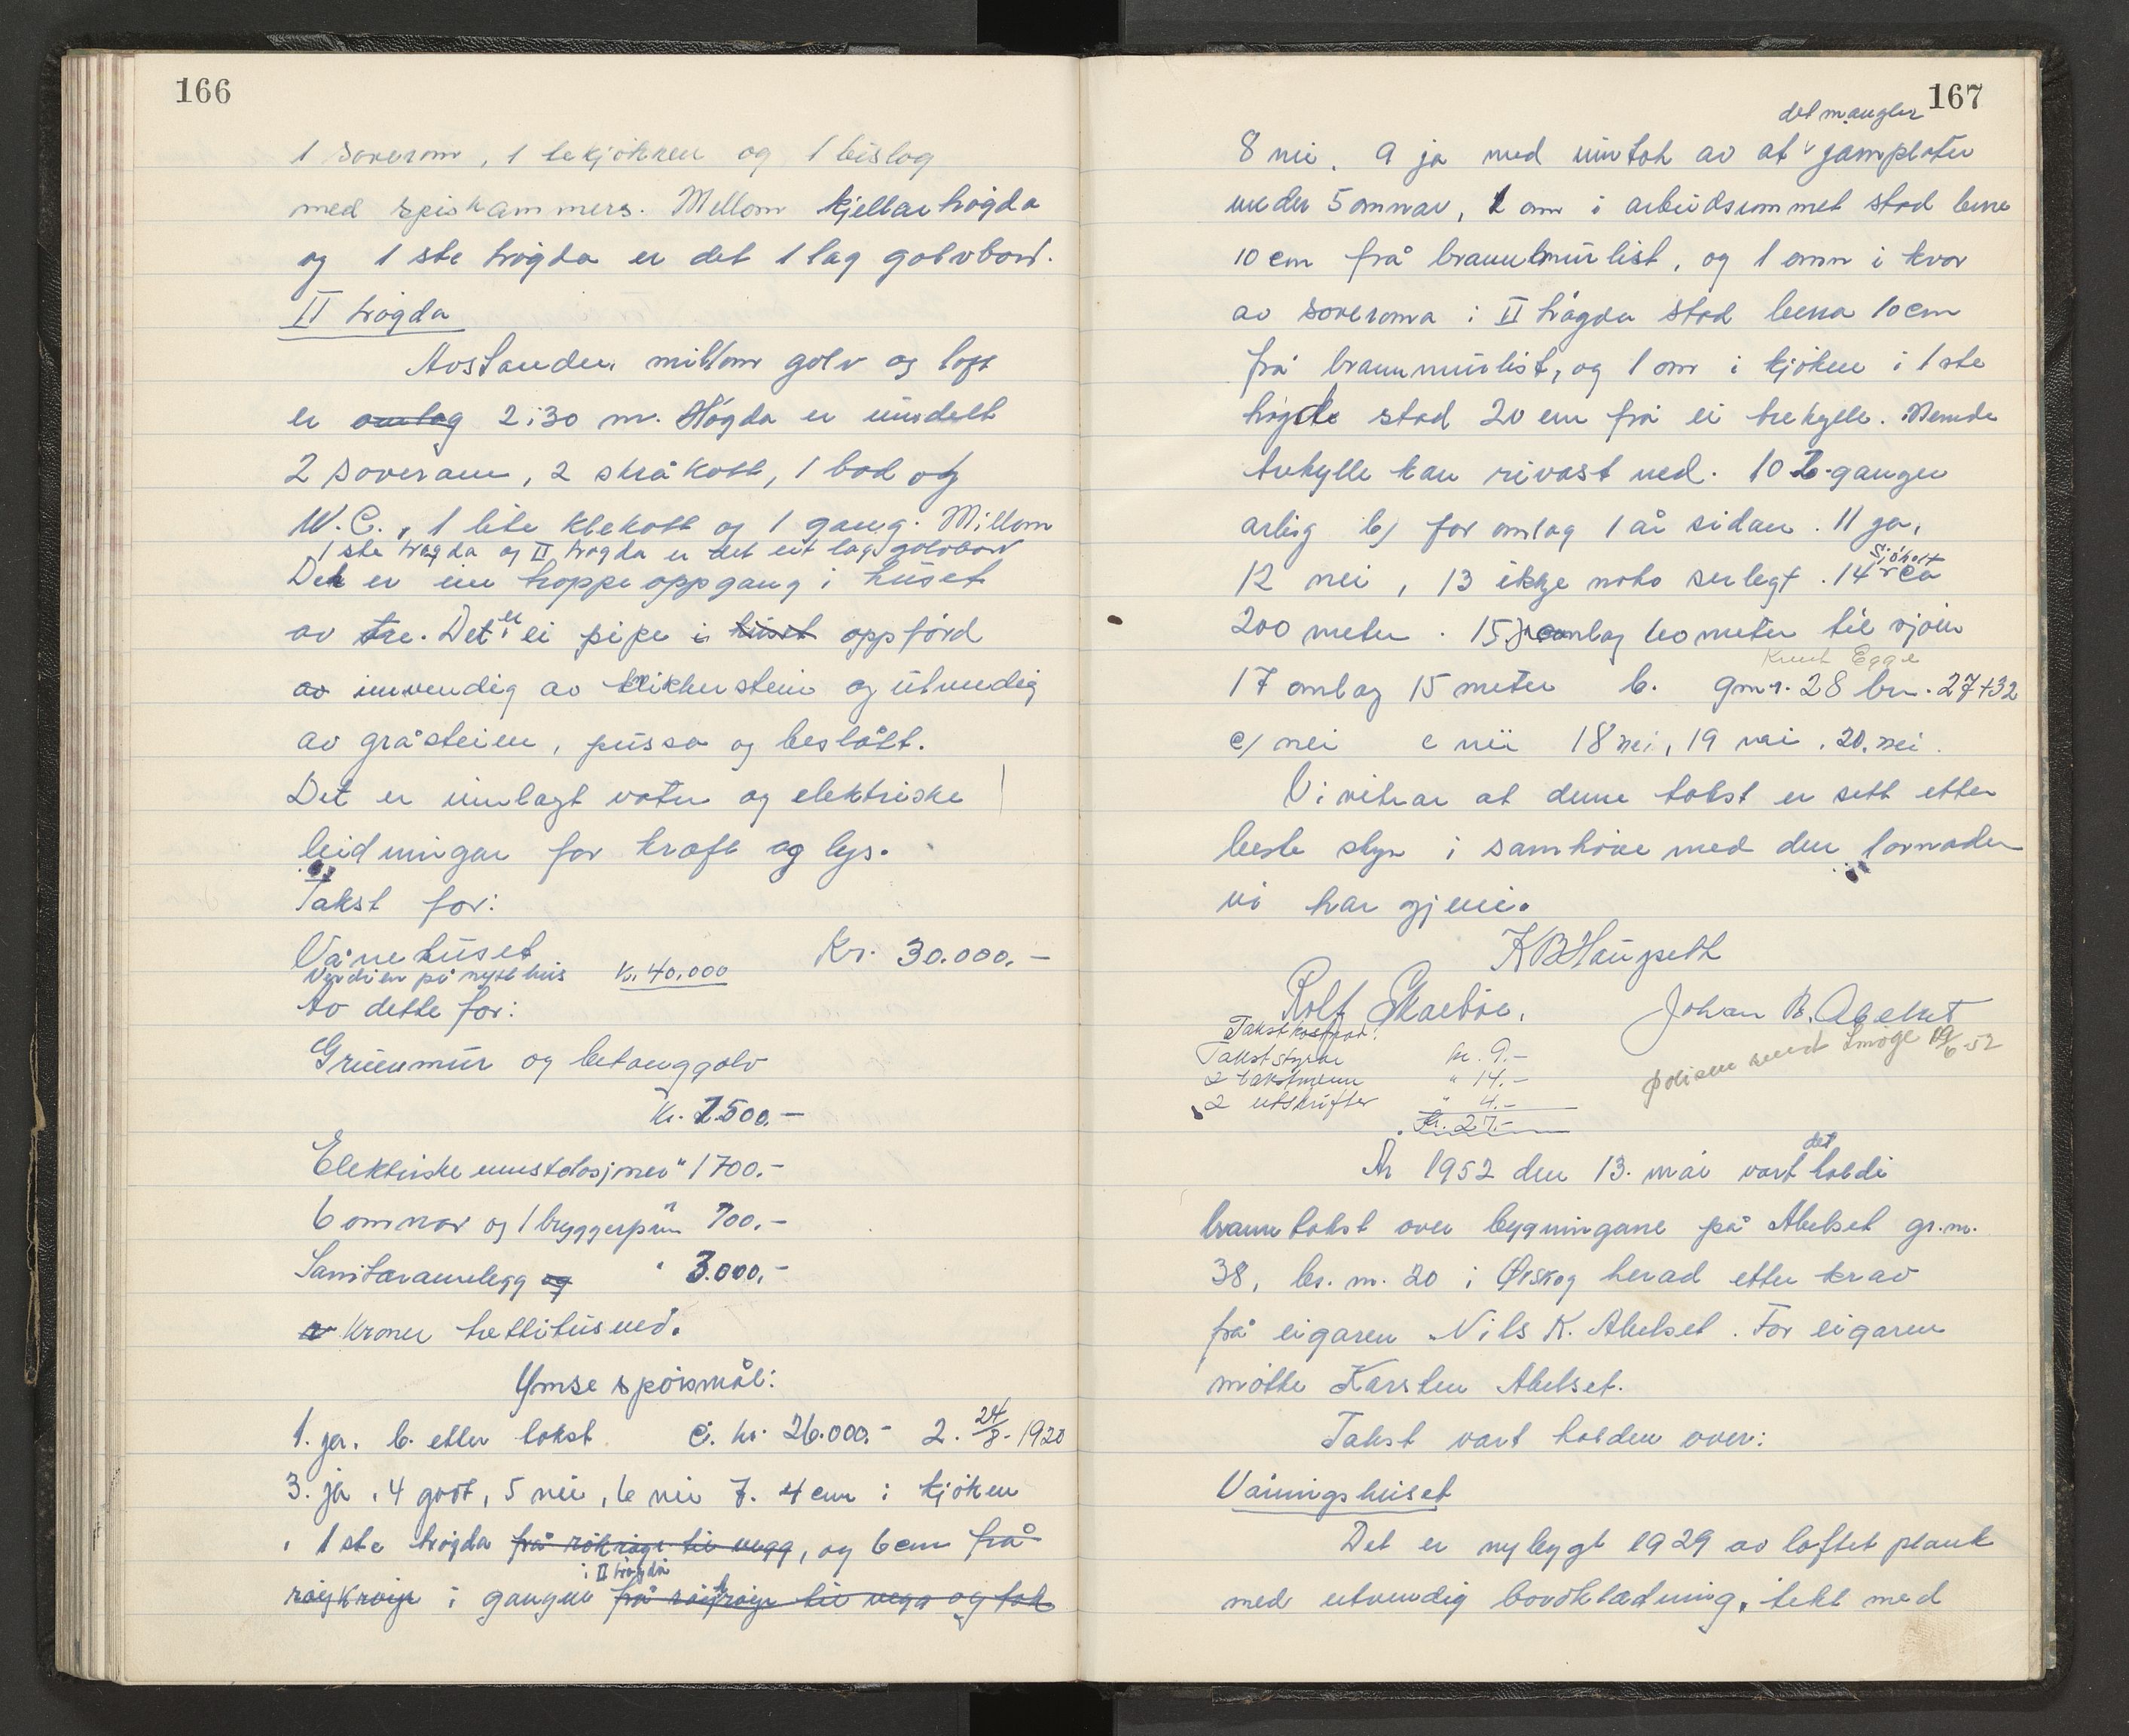 166
1 soverom, 1 tekjökken og 1 bislag
med spiskammers. Mellom kjellarhögda
og 1 ste högda er det 1 lag golvbord.
II högda
Avstanden millom golv og loft
er omlag 2:30 m. Högda er inndelt
2 soverom, 2 skråkott, 1 bad og
W.C., 1 lite klekott og 1 gang. Millom
1 ste högda og II högda er det eit lag golvbord
Det er ein troppeoppgang i huset
av tre. Det er ei pipe i huset oppförd
av innvendig av klinkerstein og utvendig
av gråstein, pussa og beslått.
Det er innlagt vatn og elektriske
leidningar for kraft og lys.
Takst for:
Vånehuset Kr. 30.000.-
Verdien på nytt hus kr. 40.000
Av dette for:
Grunnmur og betonggolv
Kr. 2500.-
Elektriske innstalasjoner " 1700.-
6 omnar og 1 bryggerpanne " 700.-
Sanitæranlegg og " 3.000.-
Kroner trettitusend.
Ymse spörsmål:
1. ja. b. etter takst c. kr. 26.000.- 2. 24/8-1920
3. ja, 4 godt, 5 nei, 6 nei 7. 4 cm i kjöken
i 1ste högda frå rökröyr til vegg, og 6 cm frå
röykröyr i gangen i II högda frå röykröyr til vegg og tak
167
det mangler
8 nei. 9 ja med unntak av at jarnplater
under 5 omnar, 1 omn i arbeidsrommet stod berre
10 cm frå brannmurlist, og 1 omn i kvar
av soveroma i II högda stod berra 10 cm
frå brannmurlist, og 1 omn i kjöken i 1 ste
högde stod 20 cm frå ei trehylle. Nemde
trehylle kan rivast ned. 10 2 gangen
årlig b/ for omlag 1 år sidan. 11 ja,
12 nei, 13 ikkje noko serlegt. 14 Sjöholt ca
200 meter. 15 omlag 60 meter til sjöen
Knut Egge
17 omlag 15 meter b. gnr. 28 bn. 27+32
c/ nei e nei 18 nei, 19 nei. 20. nei.
Vi vitnar at denne takst er sett etter
beste skyn i samhöve med den lovnaden
vi har gjeve.
K B Haugseth
Rolf Skarbö. Johan B. Abelset
Takstkostnad: polisen sendt Smöge 19/6-52
Takststyrar kr. 9.-
2 takstmenn " 14.-
2 utskrifter " 4.-
Kr. 27.-
År 1952 den 13. mai vart det haldi
branntakst over bygningane på Abelset gr.nr.
38, br. nr. 20 i Ørskog herad etter krav
frå eigaren Nils K. Abelset. For eigaren
mötte Karsten Abelset.
Takst vart halden over:
Våningshuset
Det er nybygt 1929 av laftet plank
med utvendig bordkledning, tekt med